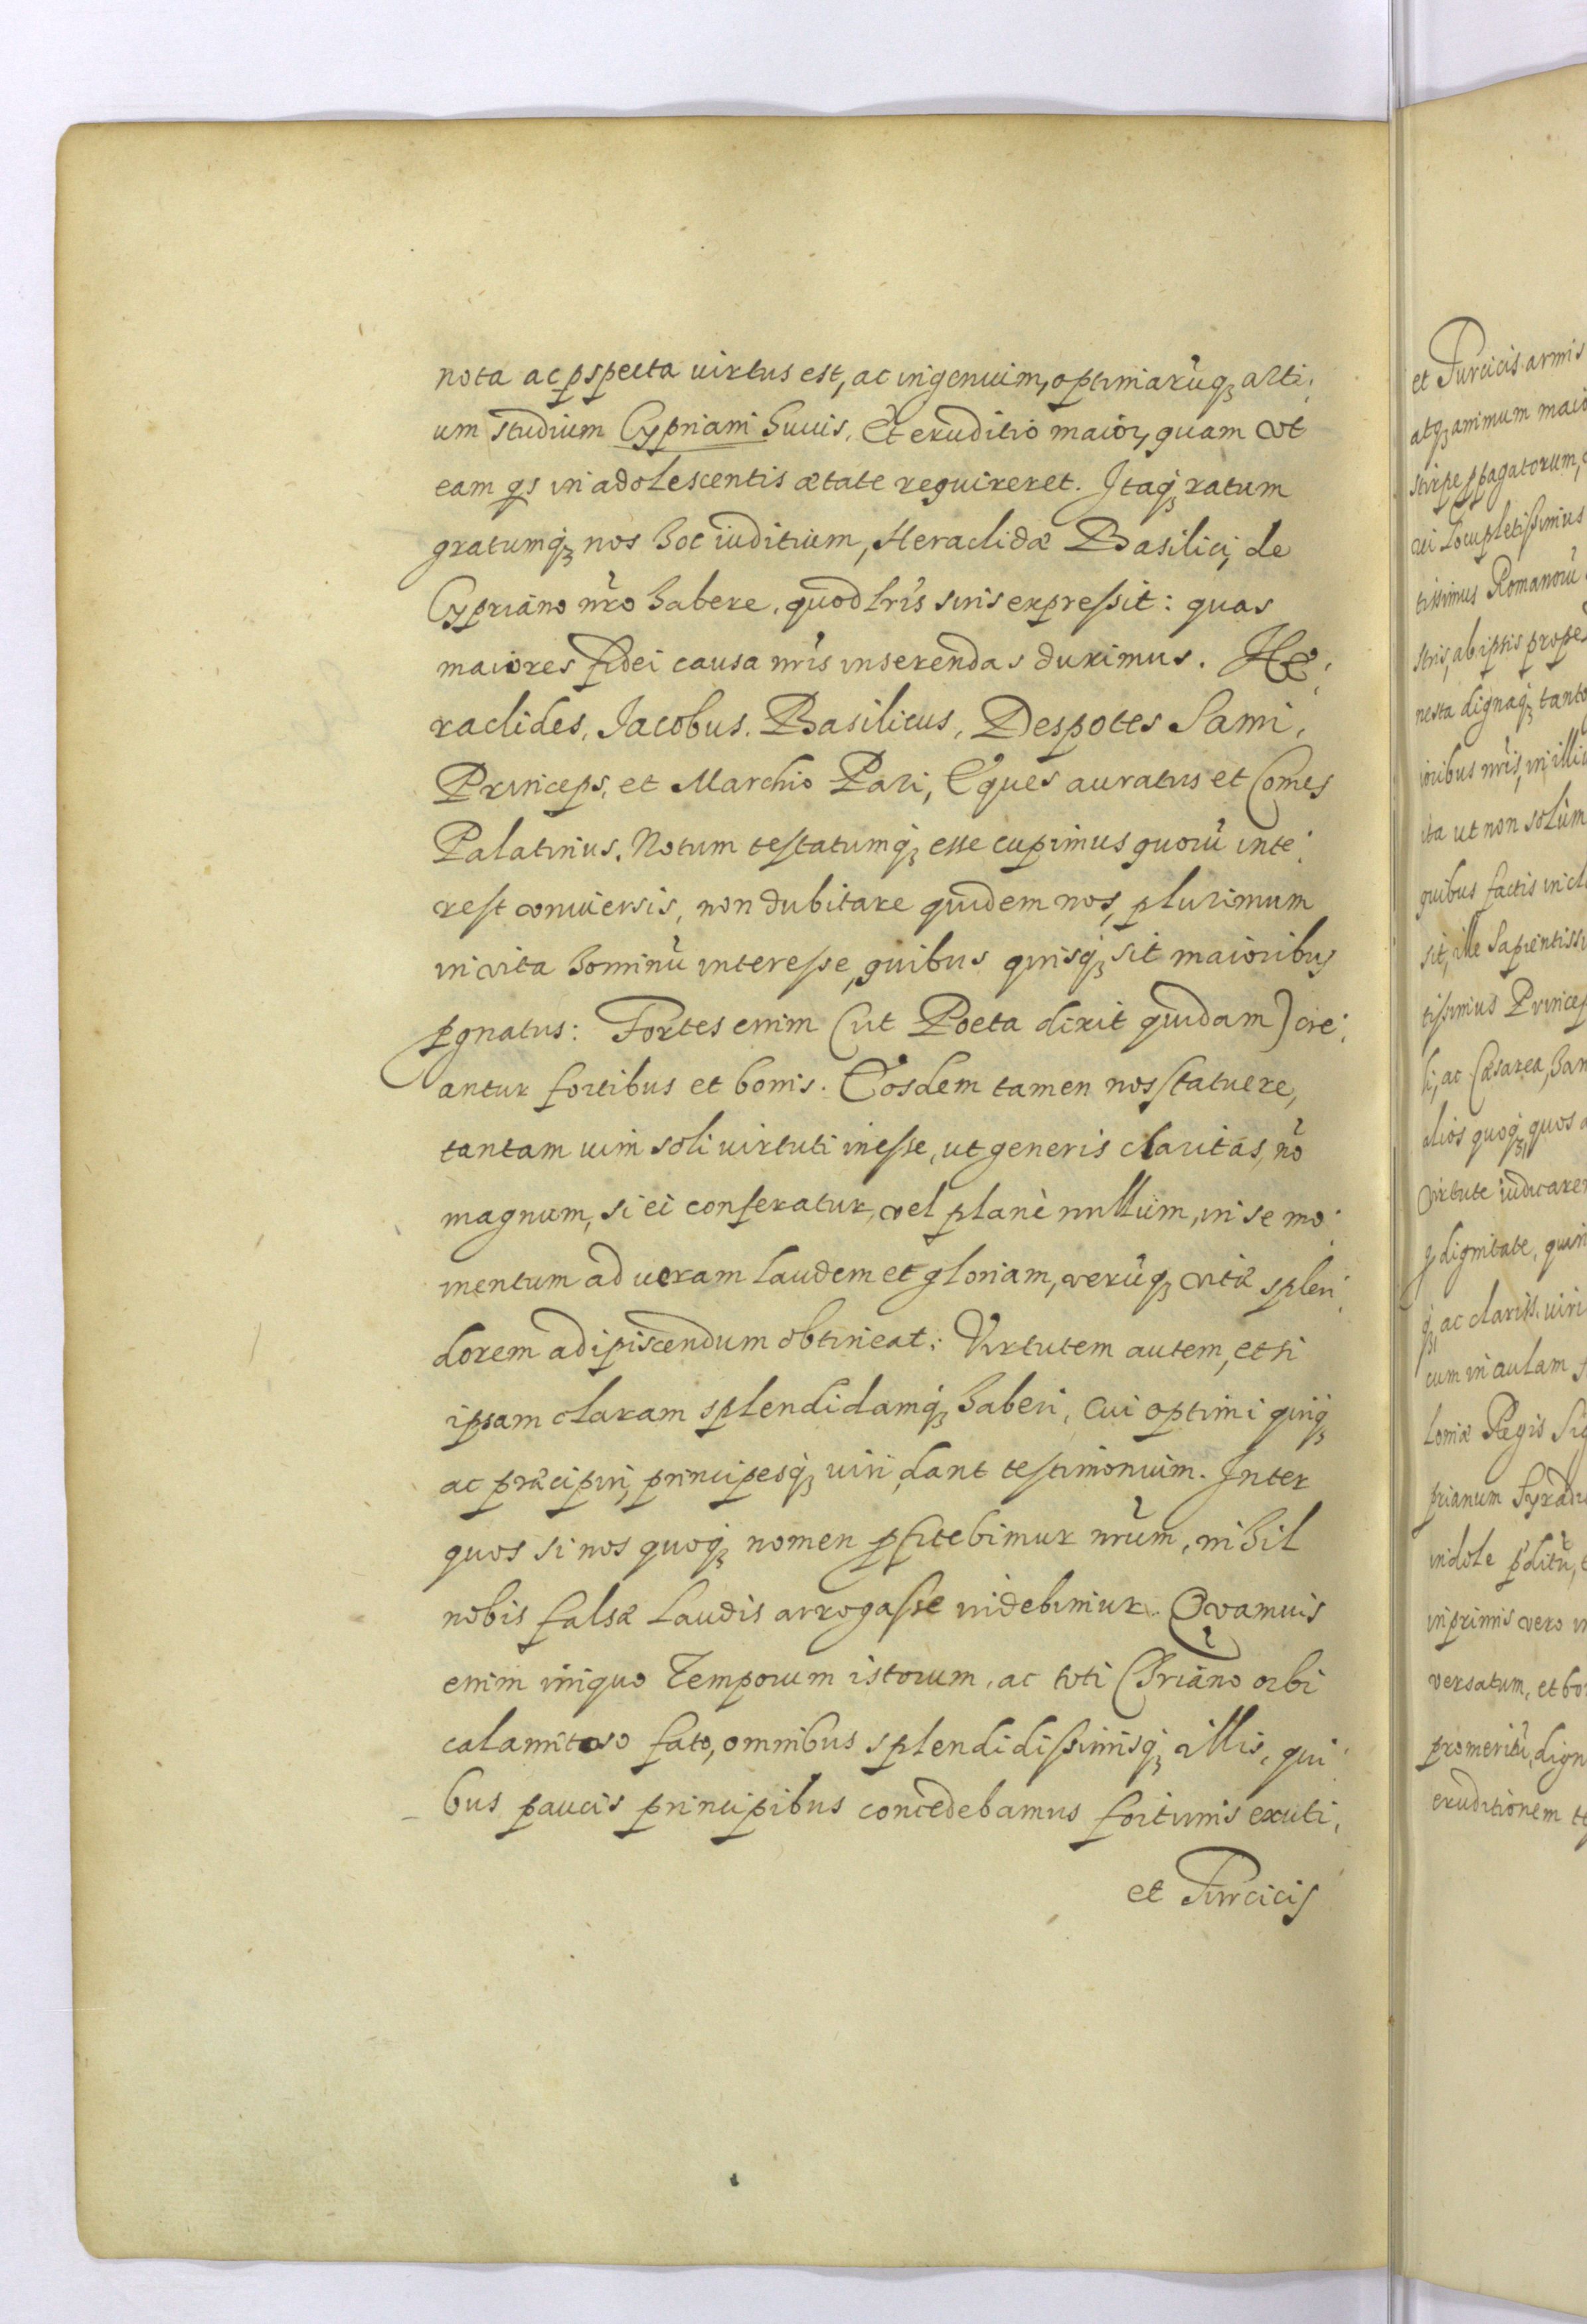 nota ac ꝑspecta uirtus est, ac ingenium, optimarũqꝫ arti,
um studium Cypriani huius. Et eruditio maior, quam vt
eam qs in adolescentis ætate requireret. Itaqꝫ ratum
gratumqꝫ nos hoc iuditium, Heraclidæ Basilici, de
Cypriano nr̃o habere, quod lr̃is suis expreſsit: quas
maiores fidei causa nr̃is inserendas duximus. He,
raclides, Jacobus. Basilicus, Despotes Sami,
Princeps, et Marchio Pari, Eques auratus et Comes
Palatinus. Notum teſtatumqꝫ esse cupimus quorũ inte,
reſt vniuersis, non dubitare quidem nos, plurimum
in vita hominũ intereſse, quibus quisqꝫ sit maioribus
ꝓgnatus: Fortes enim (ut Poeta dixit quidam) cre,
antur fortibus et bonis. Eosdem tamen nos ſtatuere,
tantam uim soli uirtuti ineſse, ut generis claritas, nõ
magnum, si ei conferatur, vel planè nullum, in se mo,
mentum ad ueram laudem et gloriam, verũqꝫ vitæ splen,
dorem adipiscendum obtineat: Virtutem autem, et si
ipsam claram splendidamqꝫ haberi, cui optimi quiqꝫ
ac præcipui, principesqꝫ uiri, dant teſtimonium. Inter
quos si nos quoqꝫ nomen ꝓfitebimur nr̃um, nihil
nobis falsæ laudis arrogaſse uidebimur. Qvamuis
enim iniquo temporum istorum, ac toti Chr̃iano orbi
calamitoso fato, omnibus splendidiſsimisqꝫ illis, qui,
bus paucis principibus concedebamus fortunis exuti,
et Turcicis
et Turcicis armis
atqꝫ animum maio
stirpe ꝓpagatorum,
rei Locupletiſsimus
tissimus Romanorũ
stris, ab ipsis prope
nesta dignaqꝫ tanto
ioribus nr̃is, in illi
ita ut non solùm
quibus factis incl
sit, ille Sapientiss
tiſsimus Princep
li, ac Cæsarea, han
alios quoqꝫ, quos
virtute iudicare
dignitate, quin
ac clariss. uiri
cum in aulam
loniæ Regis Sig
prianum
indole p̃ditũ,
inprimis vero in
versatum, et bo
promeritũ, dign
eruditionem te